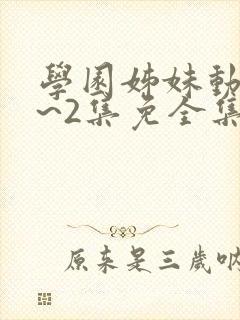 學園姊妹動
~2集免全集
原来是三歲吶